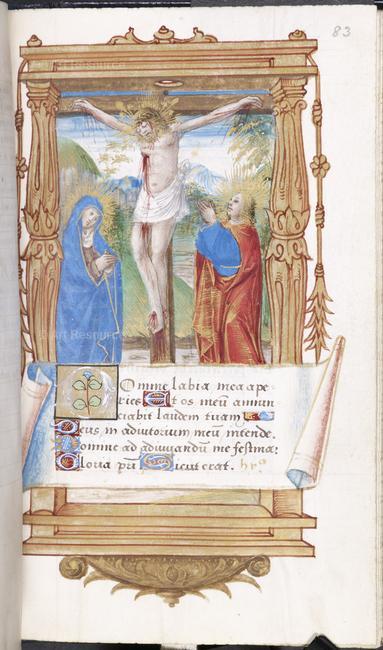 83
Domine labia mea ape-
ries. Et os meū annun-
ciabit laudem tuam
Deus in adiutorium meū intende.
Domine ad adiuuandū me festina:
Gloria pr̄i Sicut erat. hy⁹
Art Resource